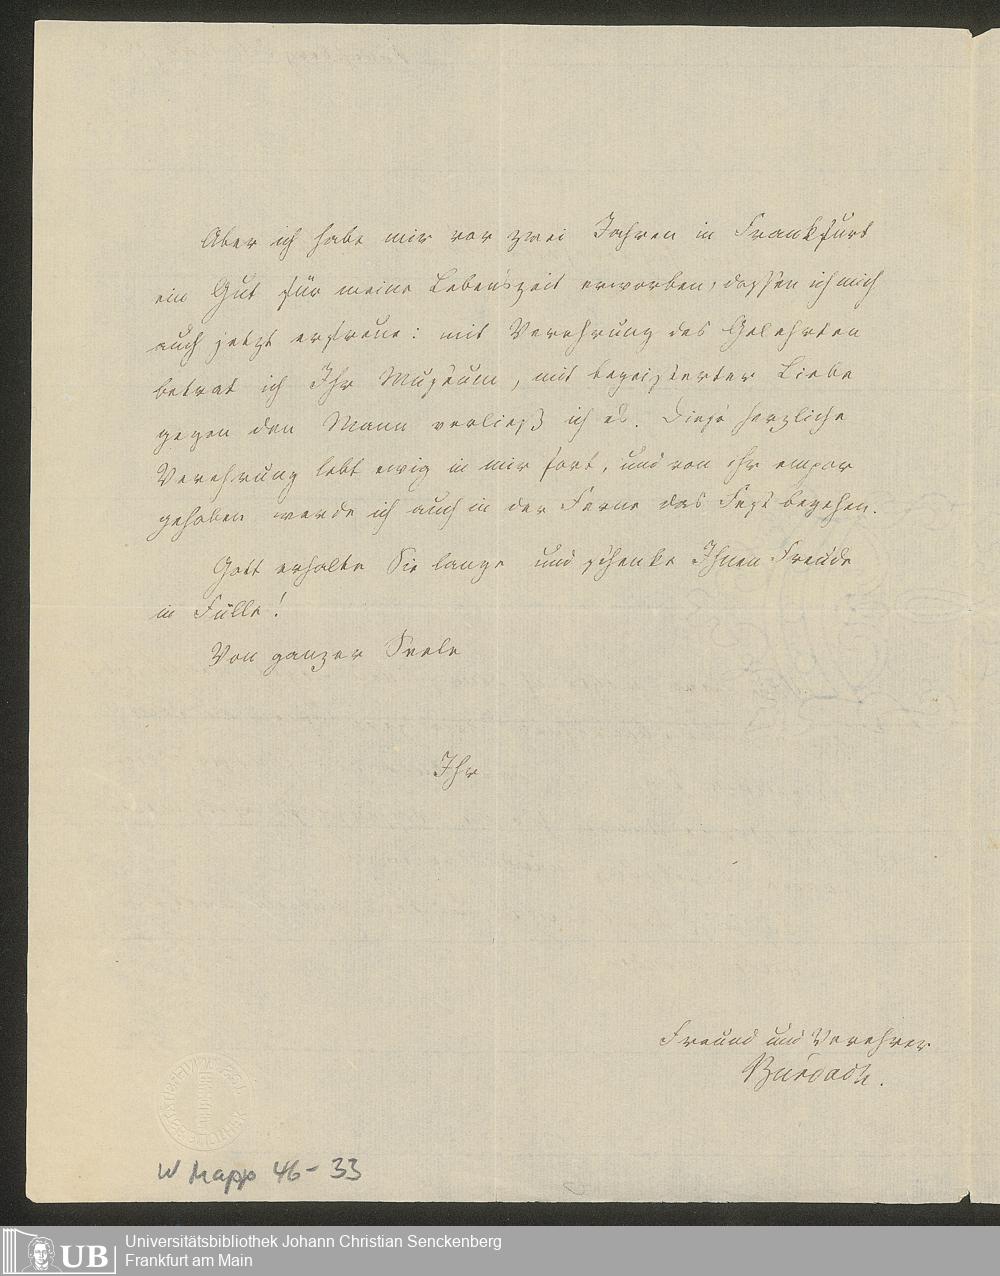 Aber ich habe mir vor zwei Jahren in Frankfurt
ein Gut für meine Lebenszeit erworben, dessen ich mich
auch jetzt erfreue: mit Verehrung des Gelehrten
betrat ich Ihr Museum, mit begeisterter Liebe
gegen den Mann verließ ich es. Diese herzliche
Verehrung lebt ewig in mir fort, und von ihr empor
gehoben werde ich auch in der Ferne das Fest begehen.
Gott erhalte Sie lange und schenke Ihnen Freude
in Fülle!
Von ganzer Seele
Ihr
Freund und Verehrer
Burdach.
W Mapp 46-33
UB
Universitätsbibliothek Johann Christian Senckenberg
Frankfurt am Main